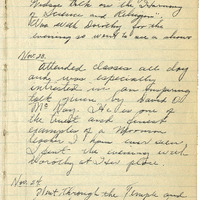 Judge talk on the "Harmony
of Science and Religion".
Was with Dorothy in the
evening as went to see a show
Nov. 23.
Attended classes all day
and was especially
intrested in an inspiring
talk given by David O.
McKay. He is one of
the truest and finest
examples of a Mormon
Apostle I have ever seen
I spent the evening with
Dorothy at Her place.
Nov. 24.
Went through the Temple and